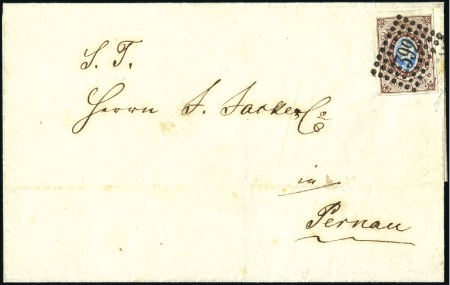 S. T.
Herrn J. Jacke & Co
in
Pernau